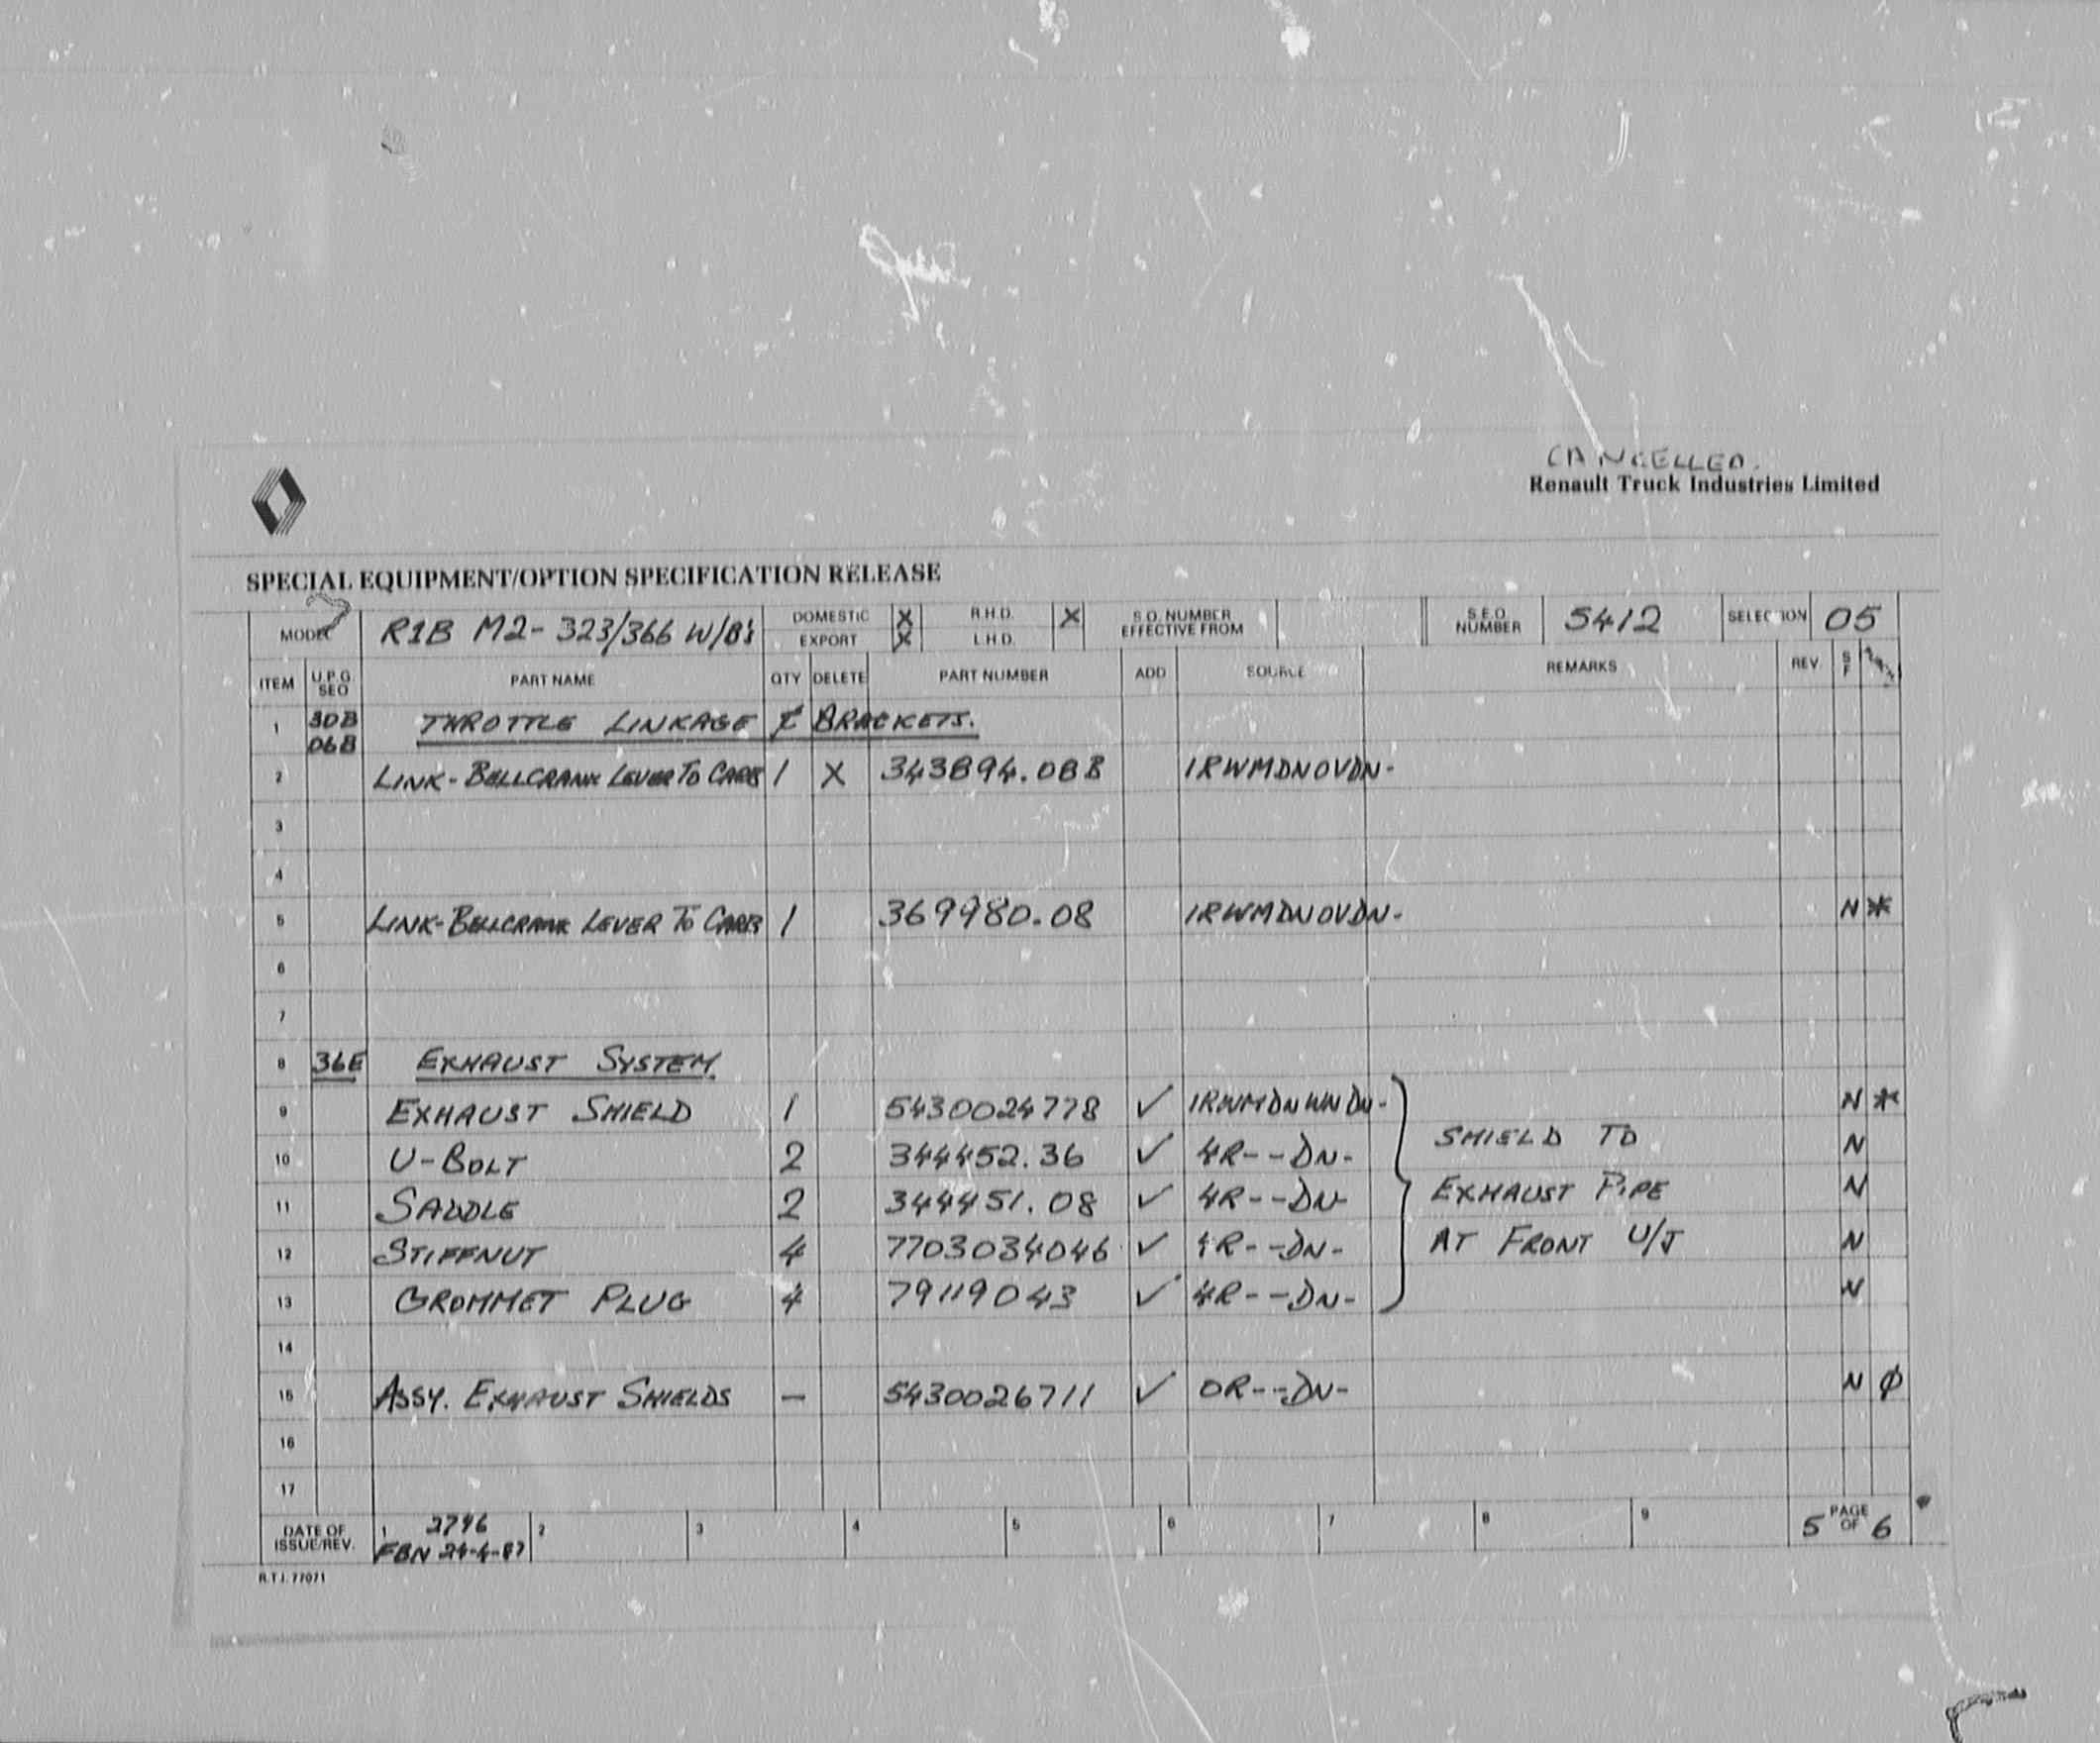 CANCELLED.
Renault Truck Industries Limited
SPECIAL EQUIPMENT/OPTION SPECIFICATION RELEASE
MODEL R1B M2-323/366 W/B's DOMESTIC X R.H.D. X S.O. NUMBER EFFECTIVE FROM S.E.O. NUMBER 5412 SELECTION 05
EXPORT X L.H.D.
ITEM U.P.G. SEO PART NAME QTY DELETE PART NUMBER ADD SOURCE REMARKS REV. S F
1 30B 06B THROTTLE LINKAGE & BRACKETS.
2 LINK-BELLCRANK LEVER TO CARB 1 X 343894.08B IRWMDNOVDN-
3
4
5 LINK-BELLCRANK LEVER TO CARB 1 369980.08 IRWMDNOVDN- N *
6
7
8 36E EXHAUST SYSTEM.
9 EXHAUST SHIELD 1 5430024778 ✓ IRWMDNWNDN- N *
10 U-BOLT 2 344452.36 ✓ 4R--DN- SHIELD TO N
11 SADDLE 2 344451.08 ✓ 4R--DN- EXHAUST PIPE N
12 STIFFNUT 4 7703034046 ✓ 4R--DN- AT FRONT U/J N
13 GROMMET PLUG 4 79119043 ✓ 4R--DN- N
14
15 ASSY. EXHAUST SHIELDS — 5430026711 ✓ OR--DN- N ϕ
16
17
DATE OF ISSUE/REV. 1 2796 FBN 24-4-87 2 3 4 5 6 7 8 9 5 PAGE OF 6
R.T.I. 77071